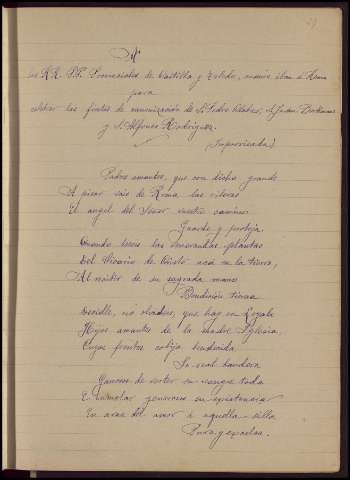 A
los RR. PP. Provinciales de Castilla y Toledo, cuando iban á Roma
para
celebrar las fiestas de canonización de S. Pedro Claver, S. Juan Berchmans
y S. Alfonso Rodriguez.
(Improvisada)
Padres amantes, que con dicha grande
A pisar vais de Roma las riberas
El angel del Señor vuestro camino
Guarde y proteja.
Cuando beseis las venerandas plantas
Del Vicario de Cristo acá en la tierra,
Al recibir de su sagrada mano
Bendición tierna
Decidle, no olvideis, que hay en Loyola
Hijos amantes de la Madre Iglesia,
Cuyas frentes cobija bendecida
Su real bandera
Ganosos de verter su sangre toda
E inmolar generosos su existencia
En aras del amor á aquella silla
Pura y excelsa.